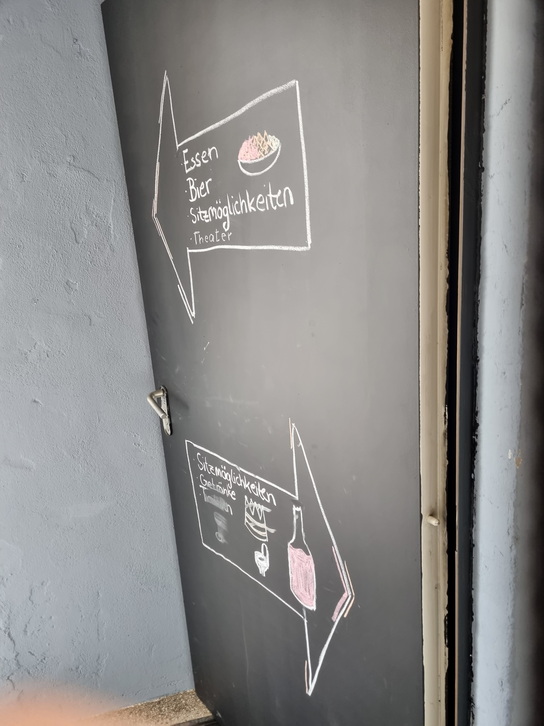 Essen
· Bier
· Sitzmöglichkeiten
· Theater
Sitzmöglichkeiten
Getränke